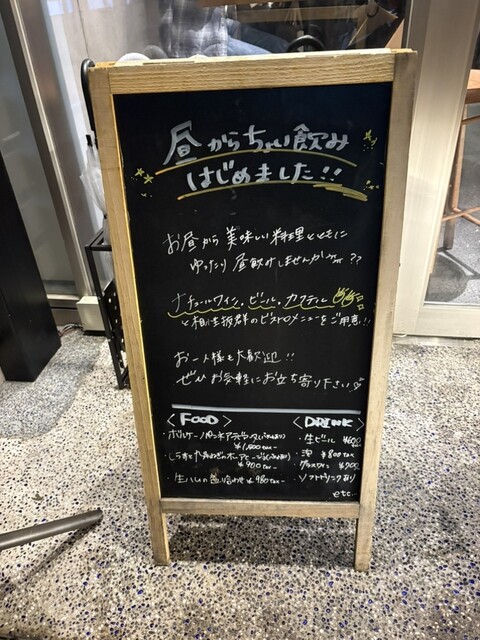 昼からちょい飲み
はじめました!!
お昼から美味しい料理とともに
ゆったり昼飲みしませんか??
ナチュールワイン、ビール、カクテル
と相性抜群のビストロメニューをご用意!!
お一人様も大歓迎!!
ぜひお気軽にお立ち寄り下さい
<FOOD>
¥1,000 tax
¥900 tax
生ハムの盛り合わせ ¥980 tax
<DRINK>
・生ビール ¥600 tax
・泡 ¥800 tax
・グラスワイン ¥900
・ソフトドリンクあり
etc...